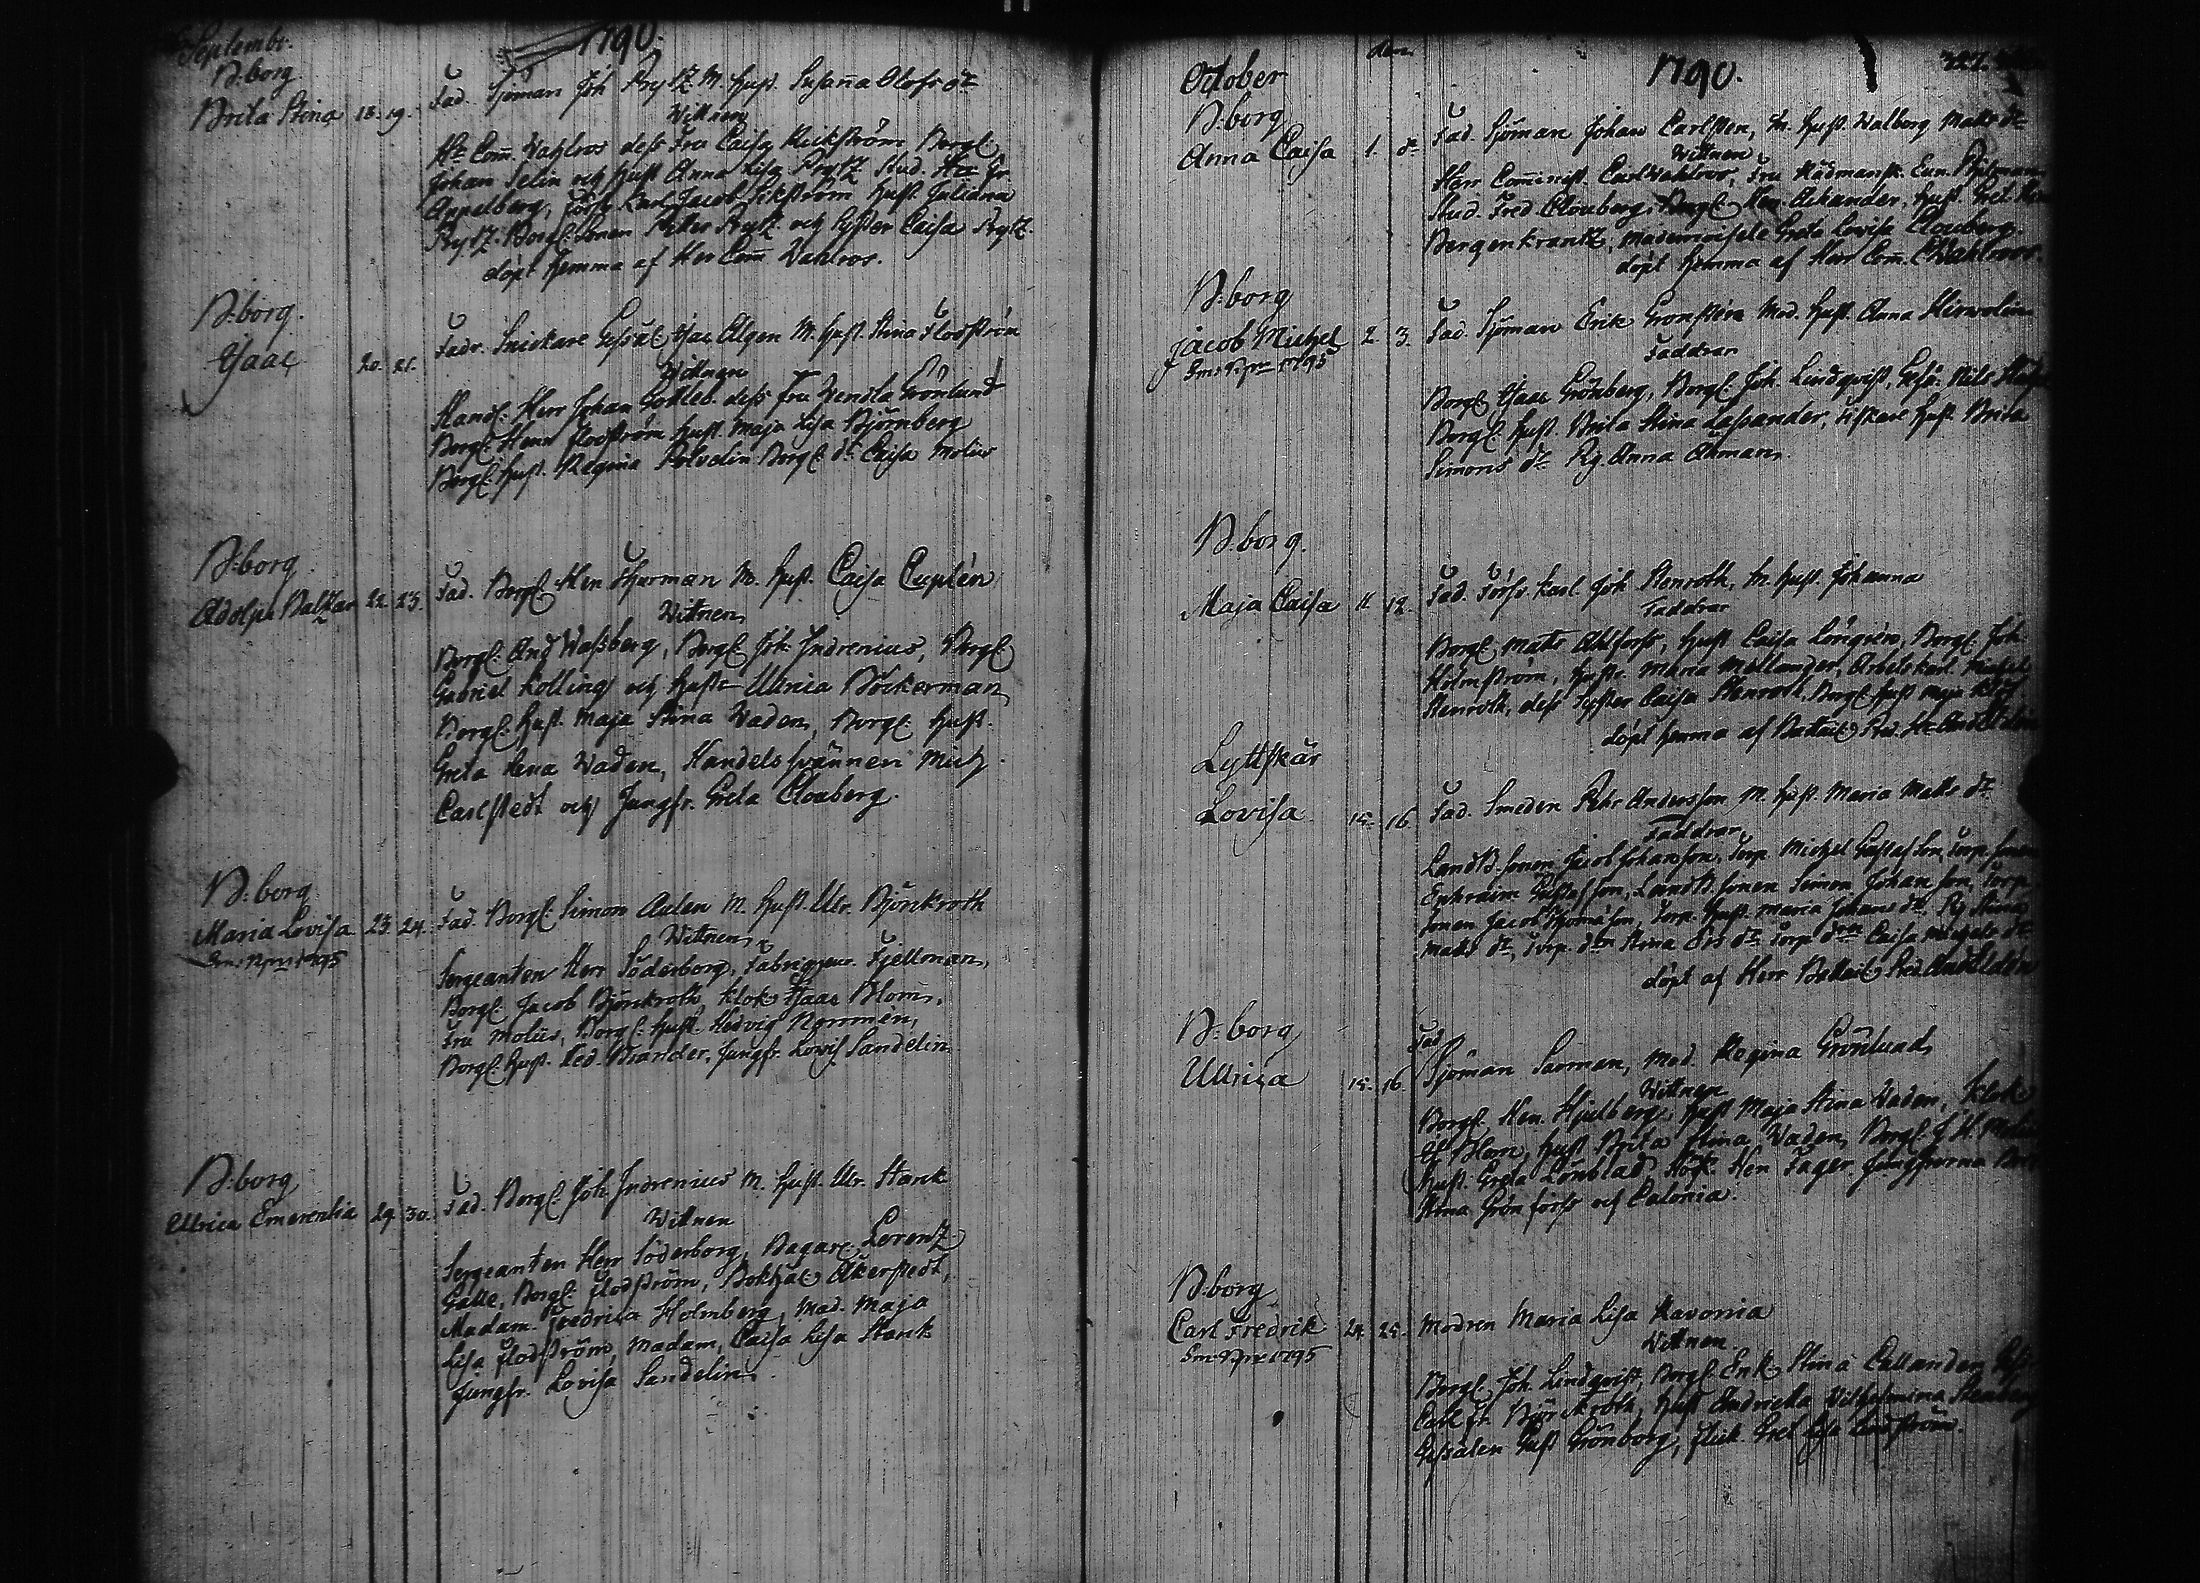 Septembr.
1790.
B:borg
Brita Stina 18. 19. Fad. Sjöman Joh Prytz M. Hust. Susanna Olofs dr
Wittnen
Hr Com. Wahlros dess Fru Caisa Rickström Borgl.
Johan Selin och Hust Anna Lisa Prytz Stud. Hr Gr.
Appelberg, Förs. Karl Jacob Ekström Hust. Juliana
Prytz. Borgl. Sonen Petter Prytz och Syster Caisa Prytz.
döpt hemma af Herr Com Wahlros.
B:borg.
Isaac 20. 21. Fadr. Snickare Gesäl Isac Algen M. Hust. Stina Flodström
Wittnen
Handl: Herr Johan Gottleb. dess fru Wendla Grönlund
Borgl: Henr Flodström Hust. Maja Lisa Björnberg
Borgl: Hust. Regina Polvelin Borgl. dr Caisa Molius
B:borg.
Adolph Baltzar 22. 23. Fad. Borgl. Hen Thurman M. Hust. Caisa Cuplén
Wittnen
Borgl: And Wassberg, Borgl: Joh. Indrenius, Borgl.
Gabriel Kolling och Hustr Ulrica Böckerman,
Borgl: Hust. Maja Stina Waden, Borgl. Hust.
Greta Lena Waden, Handels svännen Mich.
Carlstedt och Jungfr. Greta Clouberg.
B:borg
Maria Lovisa 23. 24. Fad. Borgl: Simon Aalen M. Hust. Ulr. Björkroth
1795 Wittnen
Sergeanten Herr Söderborg, Fabriqueur Fjellman,
Borgl. Jacob Björkroth, Klok. Isaac Blom,
Fru Molius, Borgl: Hust. Hedvig Nymmén,
Borgl. Hust. Hed. Brander, Jungfr. Lovis. Sandelin
B:borg
Ullrica Emerentia 29. 30. Fad. Borgl: Joh. Indrenius M. Hust. Ulr. Stark
Wittnen
Sergeanten Herr Söderborg, Bagare Lorentz
Galle, Borgl. Flodström, Bokhål Åkerstedt,
Madam. Fredrica Holmberg, Mad. Maja
Lisa Flodström, Madam, Caisa Lisa Stark
Jungfr. Lovisa Sandelin.
October
1790.
B:borg
Anna Caisa 1. dr Fad. Sjöman Johan Carlsten, M. Hust. Walborg Matts dr
Wittnen
Herr Comminist. Carl Wahlros, Fru Rådmansk. Eun.
Stud. Fred Clouberg, Borgl Hen. Achander, Hust. Gret.
Bergenkrantz, Mademoiselle Greta Lovisa Clouberg.
döpt hemma af Herr Com. C Wahlroos.
B:borg
Jacob Michel 2. 3. Fad. Sjöman Erik Gronstén Mod. Hust. Anna
1795 Faddrar
Borgl. Isaac Grönberg, Borgl: Joh. Lindqvist, Gesä. Nils
Borgl: Hust. Brita Stina Lassander, Fiskare Hust. Brita
Simons dr Pig. Anna Åhman.
B:borg.
Maja Caisa 11 12. Fad. Försv. Karl. Joh Stenroth, M. Hust. Johanna
Faddrar
Borgl. Matts Ahlforss, Hust Caisa Löngrén, Borgl: Joh
Holmström, Hustr. Maria Mellander, Arbetskarl. Michel
Stenroth, dess Syster Caisa Stenroth. Borgl. Hust Maja
döpt hemma af Battail: Pred. Hr
Lyttskär
Lovisa 15. 16. Fad. Smeden Pehr Andersson M. Hust. Maria Matts dr
Faddrar.
Landb. Sonen Jacob Johansson, Torp. Michel Gustafson, Torp. Sonen
Ephraim Gustafsson, Landb. Sonen Simon Johansson, Torp.
Sonen Jacob Thomasson, Torp. Hust. Maria Johans dr, Pig Anna
Matts dr, Torp. dtr Stina Ers dr Torp dtr Caisa Michels dr
döpt af Herr Battail: Pred.
B:borg
Ullrica 15. 16. Fad Sjöman Sarman, Mod. Regina Grönlund,
Wittnen
Borgl. Hen. Hjulberg, Hust Maja Stina Waden, Klok.
Blom, Hust. Brita Stina Waden, Borgl. J. H.
Hust. Greta Lönblad, Hen Fager Jungfrurna
Stina Grönforss och Calonia.
B:borg
Carl Fredrik 24. 25. Modren Maria Lisa Ravonia
1795 Wittnen
Borgl. Joh. Lindqvist, Borgl. Enk. Stina Callander,
Carl Fr. Björkroth, Hust Wilhelmina
Gesälen Gust Grönborg, Flick. Gret Lisa Lindström.